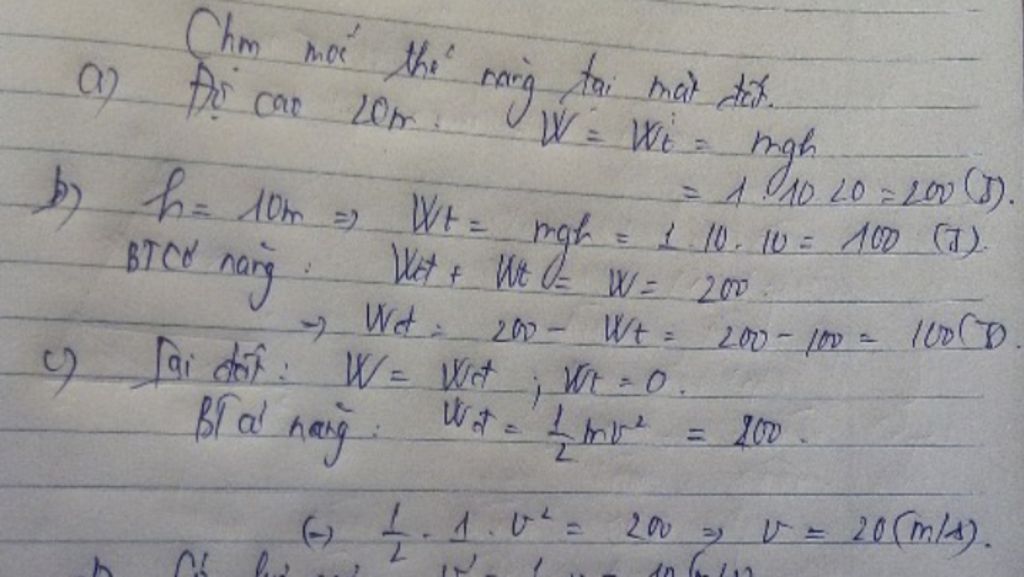 Chm mốc thế năng tại mặt đất.
a) Độ cao 20m: W = Wt = mgh
= 1.10.20 = 200 (J).
b) h = 10m => Wt = mgh = 1.10.10 = 100 (J).
BTCơ năng: Wđ + Wt = W = 200.
→ Wđ = 200 - Wt = 200 - 100 = 100 (J).
c) Tại đất: W = Wđ ; Wt = 0.
BT Cơ năng: Wđ = 1/2 mv² = 200.
(=) 1/2 . 1 . v² = 200 => v = 20 (m/s).